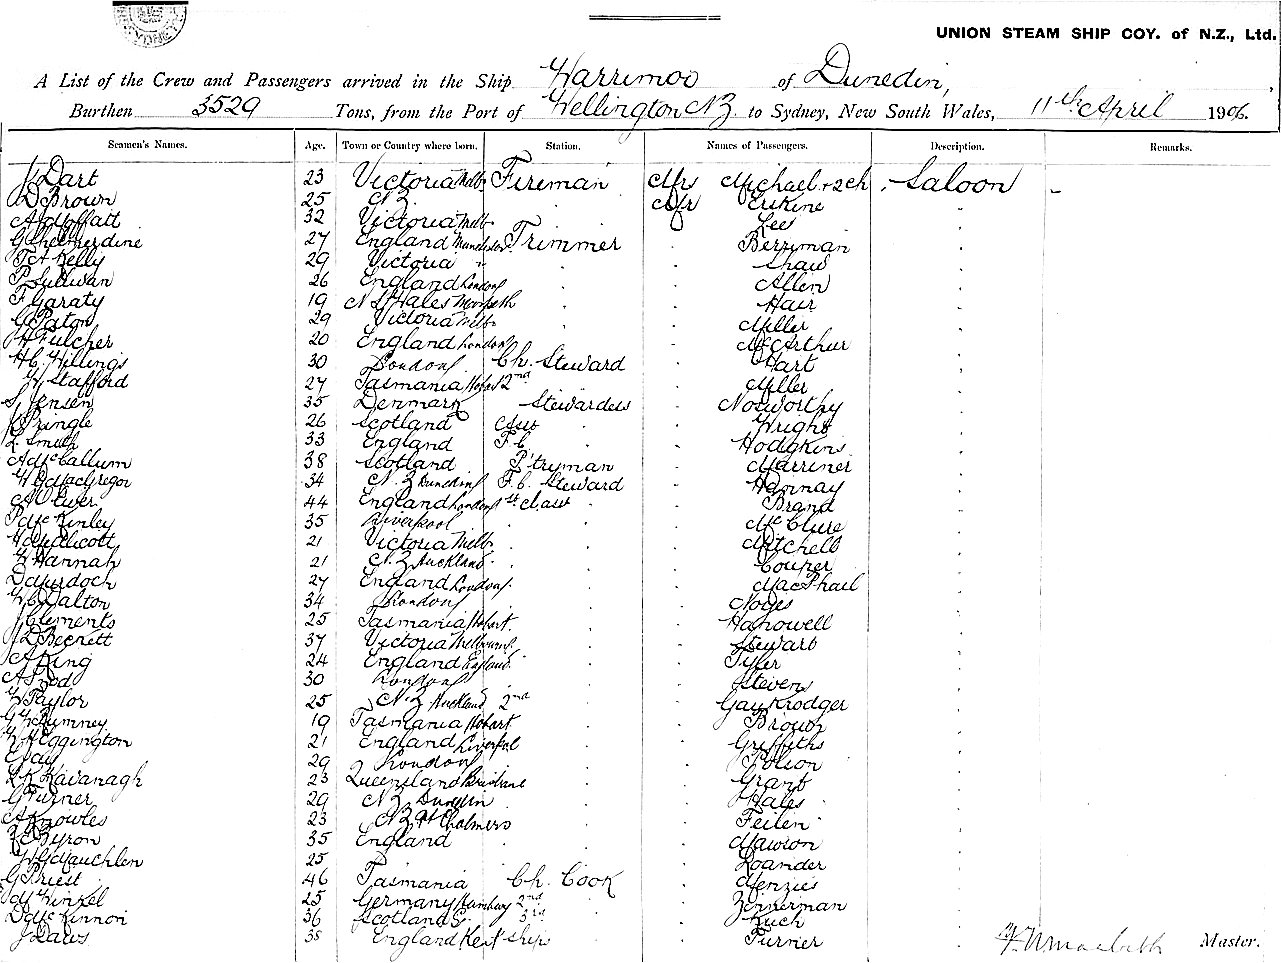 SYDNEY
UNION STEAM SHIP COY. of N.Z., Ltd.
A List of the Crew and Passengers arrived in the Ship Warrimoo of Dunedin,
Burthen 3529 Tons, from the Port of Wellington NZ. to Sydney, New South Wales, 11th April 1906.
Seamen's Names. Age. Town or Country where born. Station. Names of Passengers. Description. Remarks.
J Dart 23 Victoria Melb Fireman Mrs Michael & 2 ch Saloon
D Brown 25 N.Z. Mr Erskine
A Moffatt 32 Victoria Melb Lee
G Shelmerdine 27 England Manchester Trimmer Berryman
T A Kelly 29 Victoria " Shaw
P Sullivan 26 England London Allen
F Garaty 19 N S Wales Morpeth Hair
G Paton 29 Victoria Melb Miller
H Fulcher 20 England London McArthur
H.C. Hillings 30 London Ch. Steward Hart
W Stafford 27 Tasmania Hobart 2nd Miller
S. Jensen 35 Denmark Stewardess Nosworthy
J Pringle 26 Scotland Wright
L. Smith 33 England F.C. Hodgkins
A McCallum 38 Scotland P'tryman Marriner
W G MacGregor 34 N.Z Dunedin F.C. Steward Hannay
A Oliver 44 England London 1st class Brand
P McKinley 35 Liverpool McClure
21 Victoria Melb Mitchell
W Hannah 21 N.Z Auckland Couper
D Murdoch 27 England London MacPhail
W C Dalton 34 London Noyes
J Clements 25 Tasmania Hobart Hanowell
J D Becnett 37 Victoria Melbourne Steward
A King 24 England England Tyler
30 London Stevens
W Taylor 25 N.Z Auckland 2nd Gaukrodger
G W Rumney 19 Tasmania Hobart Brown
W H Eggington 21 England Liverpool Griffiths
E Jay 29 London Polson
L K Kavanagh 23 Queensland Brisbane Grant
G Turner 29 N.Z Dunedin Hales
A Knowles 23 N.Z Pt Chalmers Feilen
J C Byron 35 England Mawson
W G McLauchlen 25 Loander
G Priest 46 Tasmania Ch. Cook Menzies
M Winkel 25 Germany Hamburg 2nd Zimmerman
D McKinnon 36 Scotland G. 3rd Kuch
J Daws 38 England Kent Ship Turner Master.